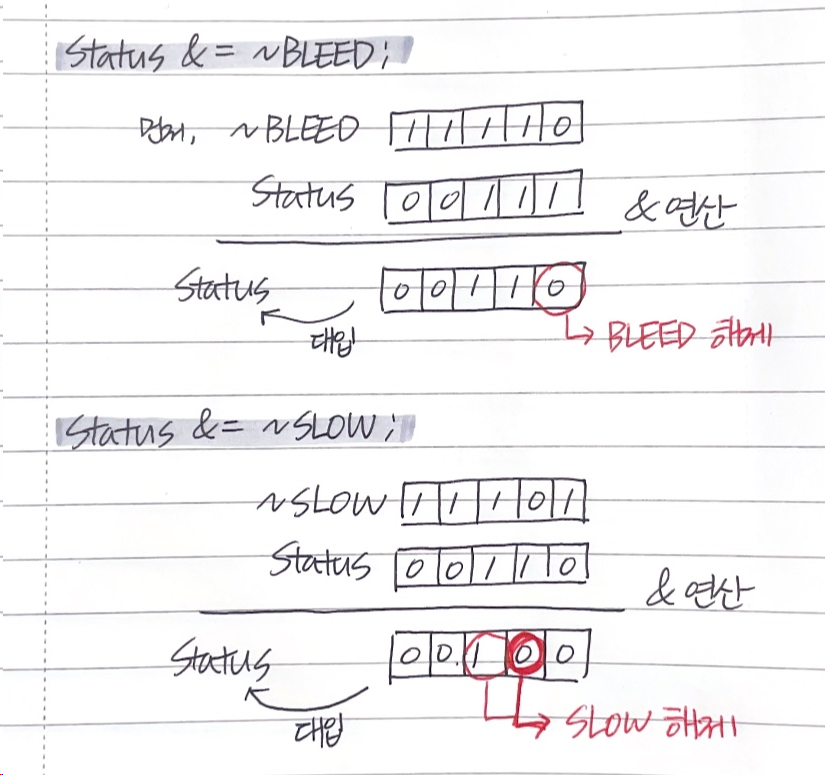 Status &= ~BLEED;
먼저, ~BLEED 1 1 1 1 0
Status 0 0 1 1 1 & 연산
Status 0 0 1 1 0
대입
BLEED 해제
Status &= ~SLOW;
~SLOW 1 1 1 0 1
Status 0 0 1 1 0
& 연산
Status 0 0. 1 0 0
대입
SLOW 해제